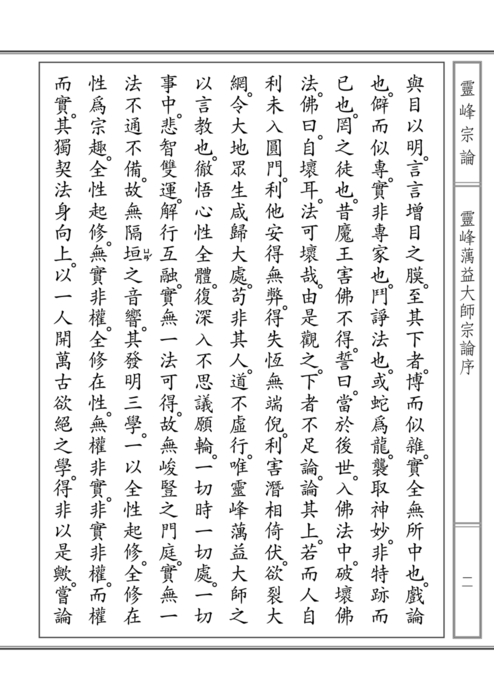 靈峰宗論
靈峰蕅益大師宗論序
二
與目以明。言言增目之膜。至其下者。博而似雜。實全無所中也。戲論
也。僻而似專。實非專家也。鬥諍法也。或蛇為龍。襲取神妙。非特跡而
已也。罔之徒也。昔魔王害佛不得。誓曰。當於後世。入佛法中。破壞佛
法。佛曰。自壞耳。法可壞哉。由是觀之。下者不足論。論其上。若而人自
利未入圓門。利他安得無弊。得失恆無端倪。利害潛相倚伏。欲裂大
網。令大地眾生咸歸大處。苟非其人。道不虛行。唯靈峰蕅益大師之
以言教也。徹悟心性全體。復深入不思議願輪。一切時一切處。一切
事中。悲智雙運。解行互融。實無一法可得。故無峻豎之門庭。實無一
法不通不備。故無隔垣ㄩㄢˊ之音響。其發明三學。一以全性起修。全修在
性為宗趣。全性起修。無實非權。全修在性。無權非實。非實非權。而權
而實。其獨契法身向上。以一人開萬古欲絕之學。得非以是歟。嘗論